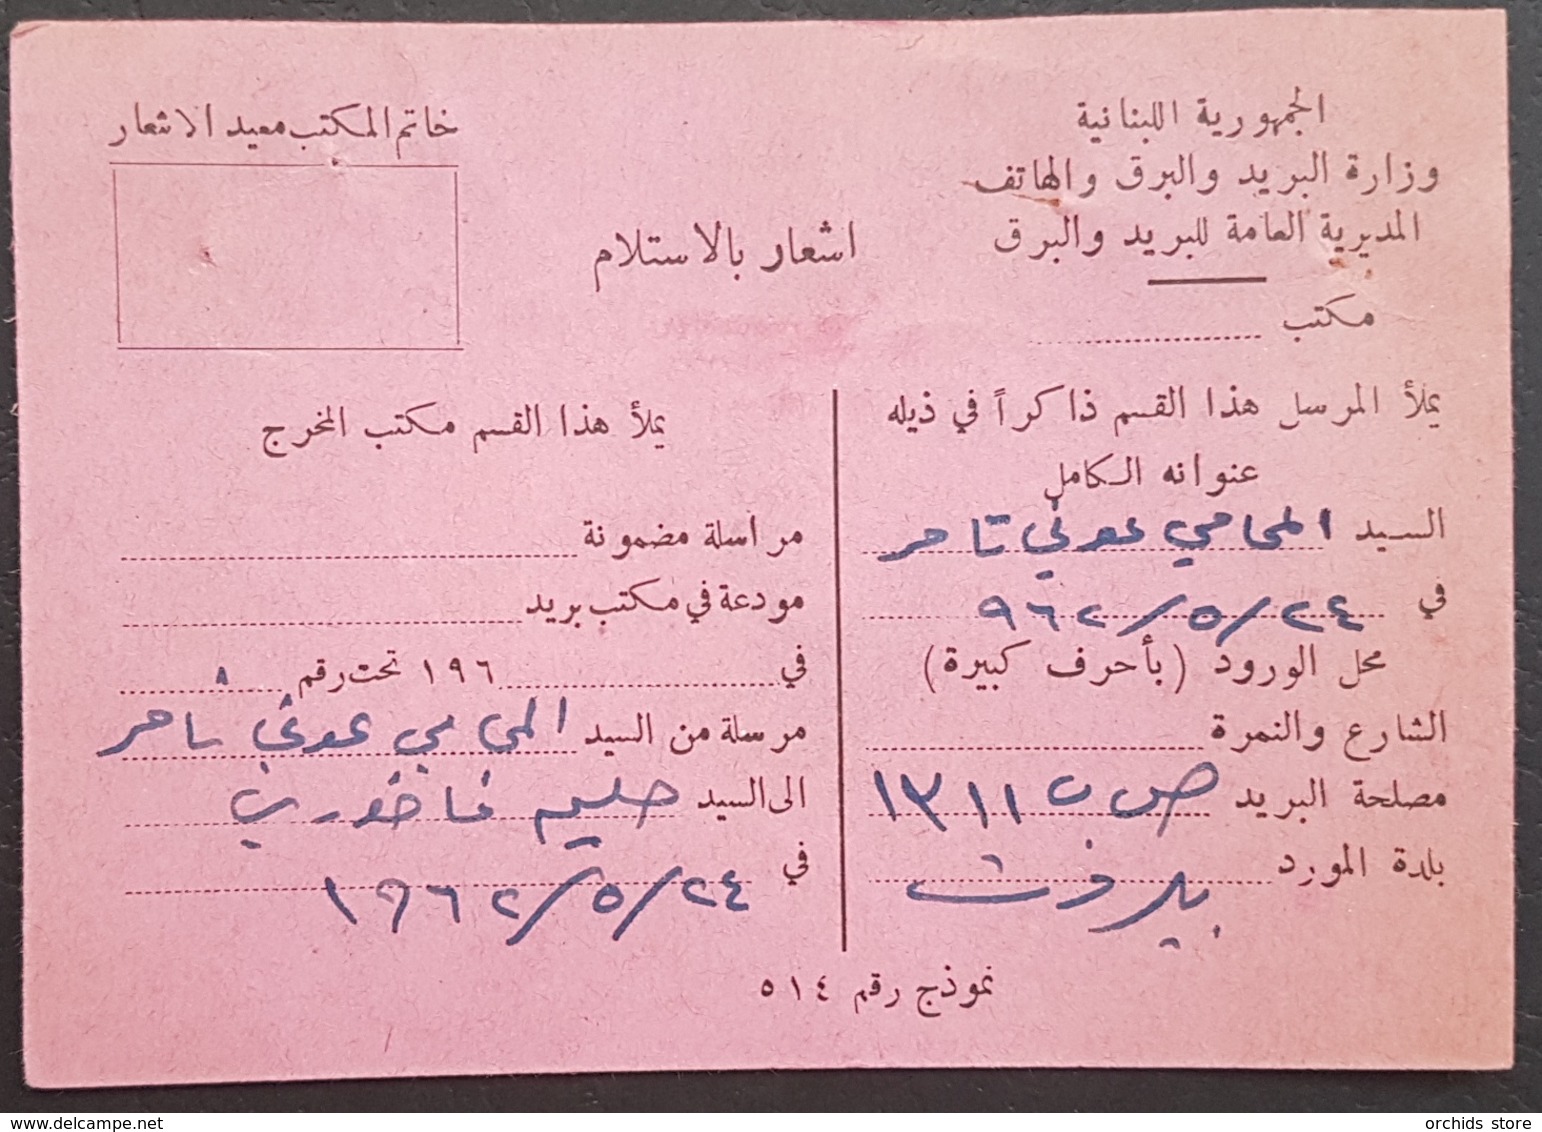 الجمهورية اللبنانية
وزارة البريد والبرق والهاتف
المديرية العامة للبريد والبرق
مكتب
خاتم المكتب معيد الاشعار
اشعار بالاستلام
يملأ المرسل هذا القسم ذاكراً في ذيله
عنوانه الكامل
السيد المحامي عوني تامر
في ٢٤/٥/٩٦٢
محل الورود (بأحرف كبيرة)
الشارع والنمرة
مصلحة البريد ص ب ١٣١١
بلدة المورد بيروت
يملأ هذا القسم مكتب المخرج
مراسلة مضمونة
مودعة في مكتب بريد
في ١٩٦ تحت رقم ٨
مرسلة من السيد المحامي عوني تامر
الى السيد حليم فاخوري
في ٢٤/٥/١٩٦٢
نموذج رقم ٥١٤
orchids store